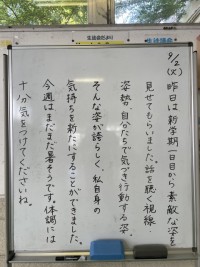 生徒会だより
生徒総会
9/2(火)
昨日は新学期一日目から素敵な姿を
見せてもらいました。話を聴く視線、
姿勢、自分たちで気づき行動する姿。
そんな姿が誇らしく、私自身の
気持ちを新たにすることができました。
今週はまだまだ暑そうです。体調には
十分気をつけてくださいね。